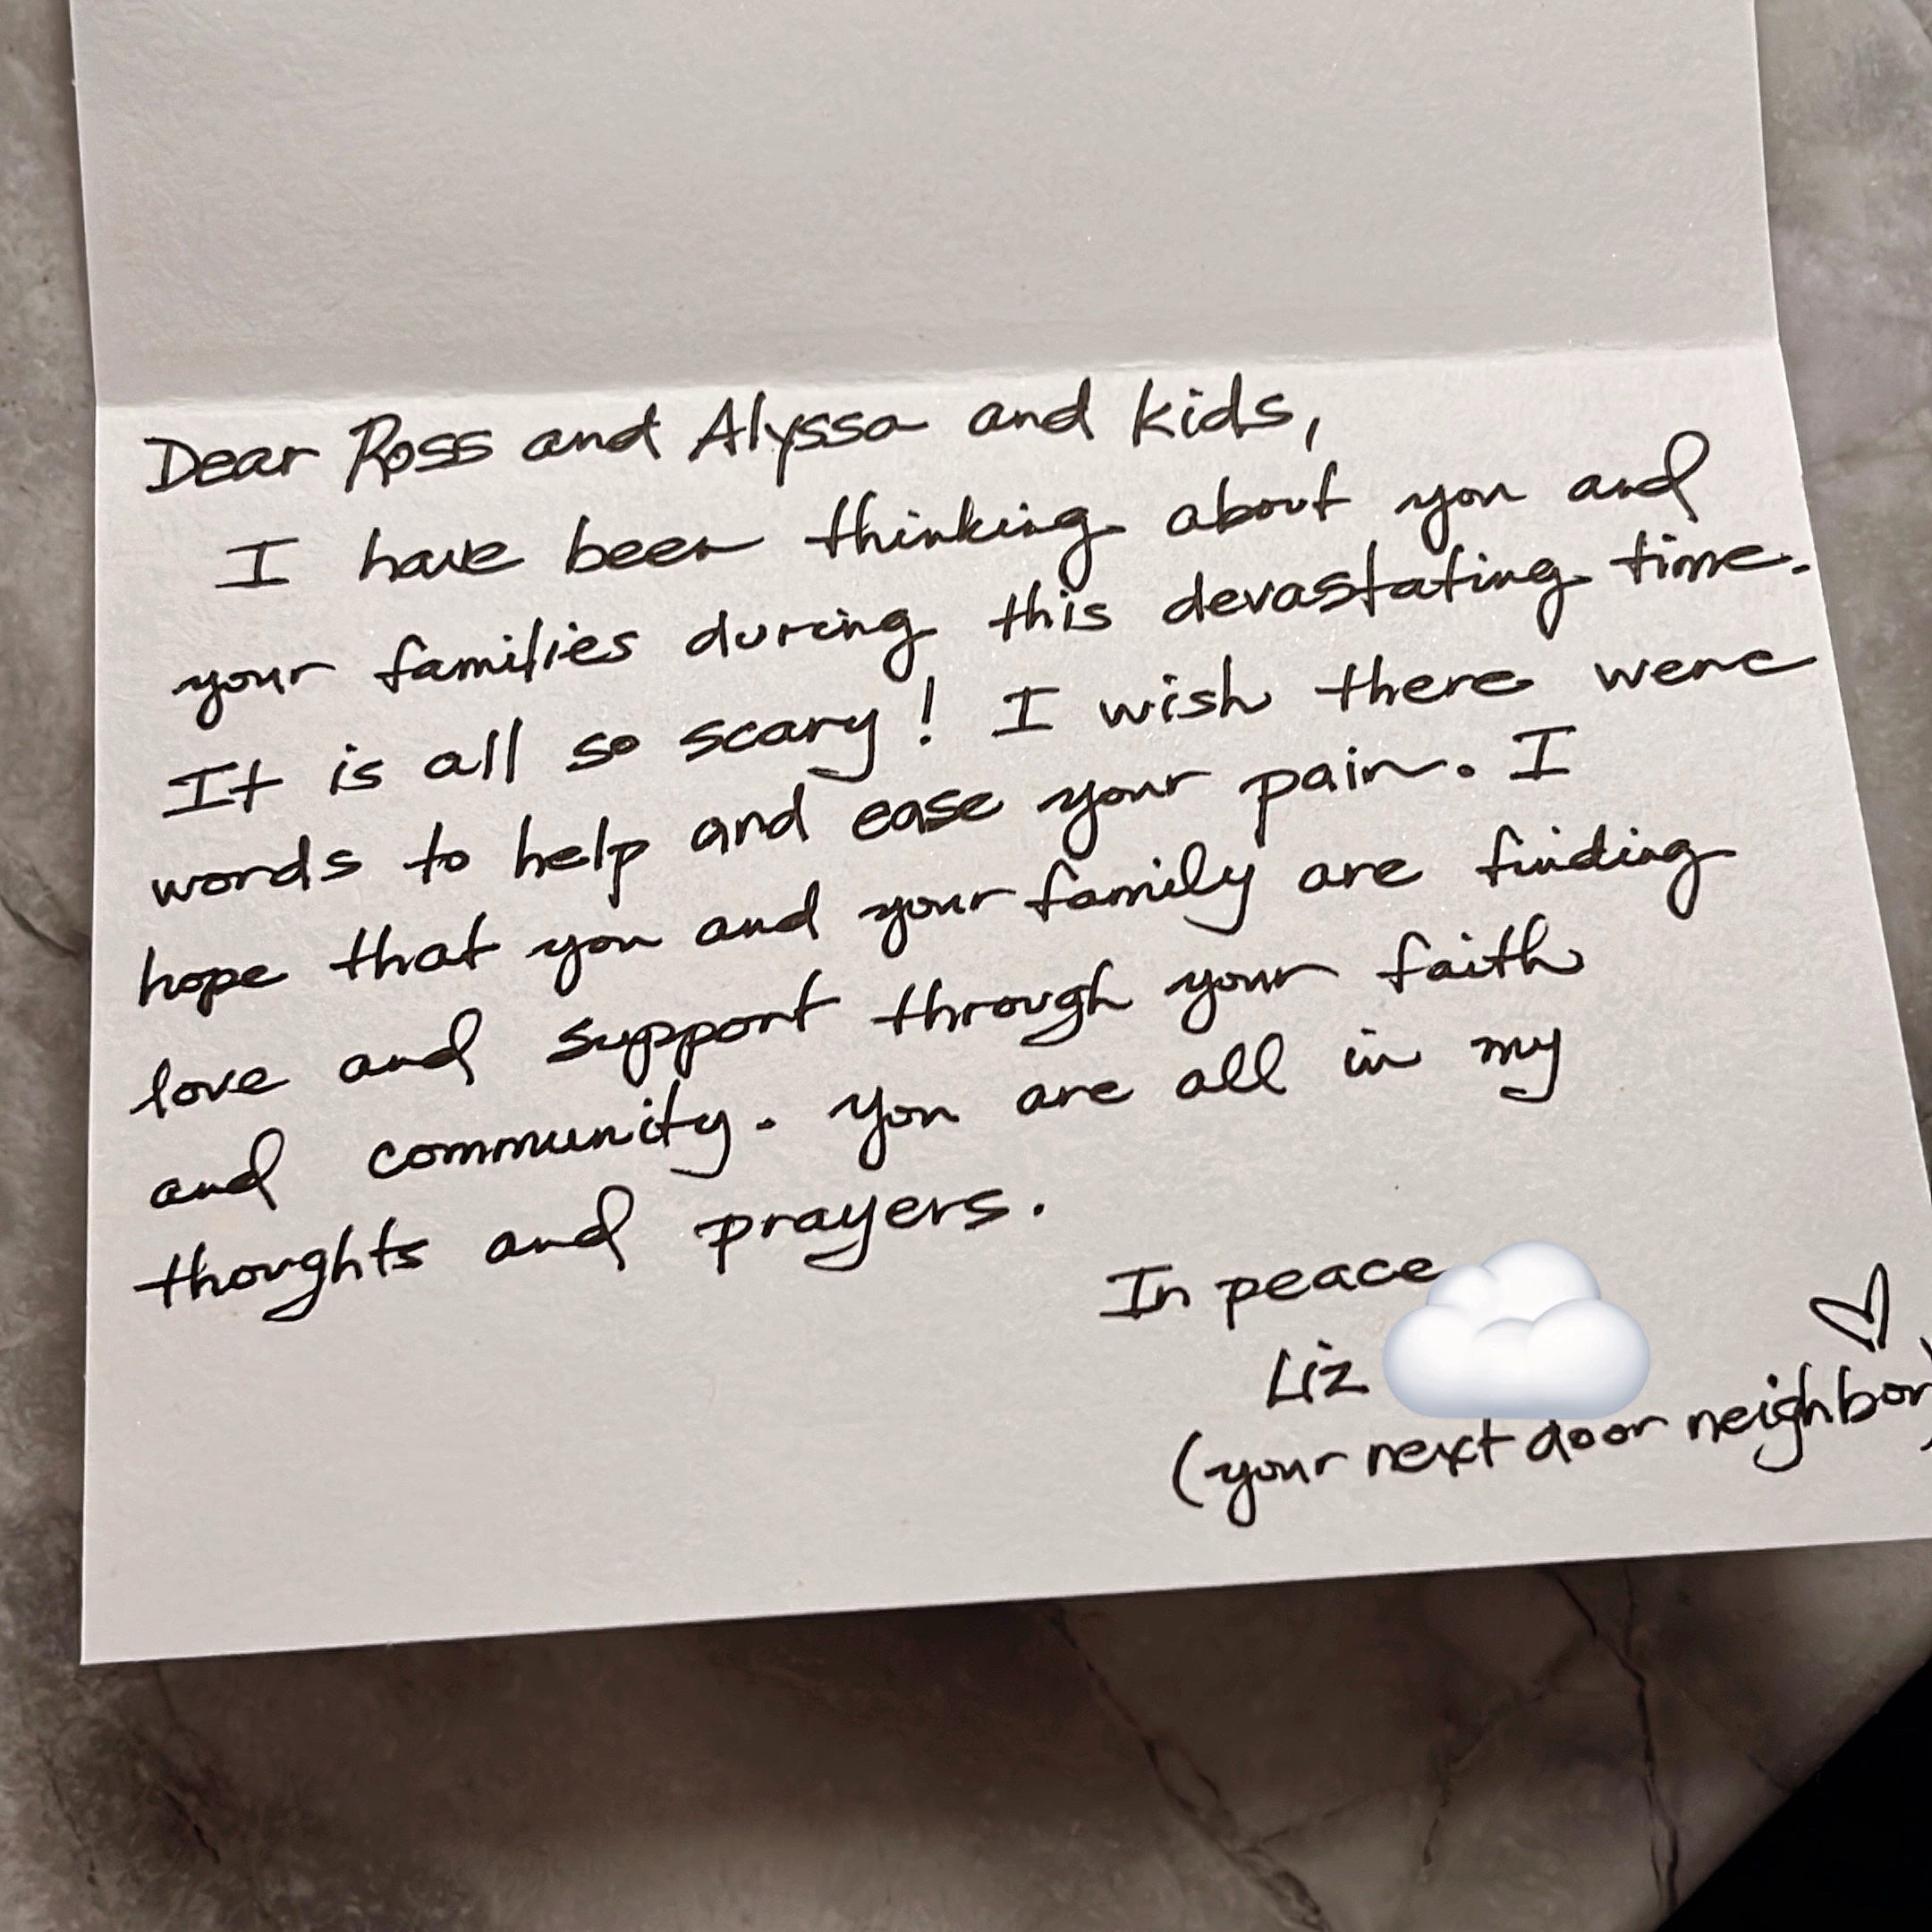 Dear Ross and Alyssa and kids,
I have been thinking about you and
your families during this devastating time.
It is all so scary! I wish there were
words to help and ease your pain. I
hope that you and your family are finding
love and support through your faith
and community. You are all in my
thoughts and prayers.
In peace
Liz
(your next door neighbor)